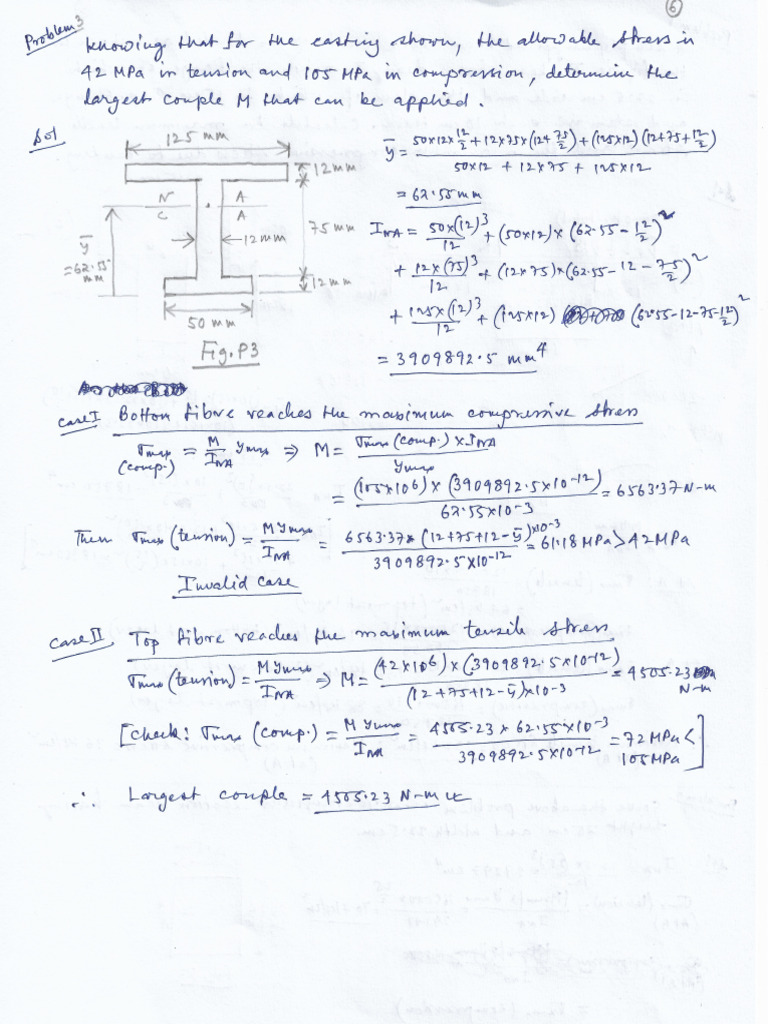 6
Problem 3
Knowing that for the casting shown, the allowable stress is
42 MPa in tension and 105 MPa in compression, determine the
largest couple M that can be applied.
Sol
125 mm
12 mm
N A
C A
75 mm
12 mm
ȳ
= 62.55 mm
12 mm
50 mm
Fig. P3
y = (50×12×12/2 + 12×75×(12+75/2) + (125×12)(12+75+12/2)) / (50×12 + 12×75 + 125×12)
= 62.55 mm
I_NA = 50×(12)^3/12 + (50×12)×(62.55 − 12/2)^2
+ 12×(75)^3/12 + (12×75)×(62.55 − 12 − 75/2)^2
+ 125×(12)^3/12 + (125×12) (62.55-12-75-12/2)^2
= 3909892.5 mm^4
Case I Bottom fibre reaches the maximum compressive stress
σmax (comp.) = M/I_NA ymax ⇒ M = σmax (comp.) × I_NA / ymax
= (105×10^6) × (3909892.5×10^-12) / 62.55×10^-3 = 6563.37 N-m
Then σmax (tension) = M ymax / I_NA = 6563.37 × (12+75+12−ȳ)×10^-3 / 3909892.5×10^-12 = 61.18 MPa > 42 MPa
Invalid case
Case II Top fibre reaches the maximum tensile stress
σmax (tension) = M ymax / I_NA ⇒ M = (42×10^6) × (3909892.5×10^-12) / (12+75+12−ȳ)×10^-3 = 4505.23 N-m
[Check: σmax (comp.) = M ymax / I_NA = 4505.23 × 62.55×10^-3 / 3909892.5×10^-12 = 72 MPa < 105 MPa]
∴ Largest couple = 4505.23 N-m